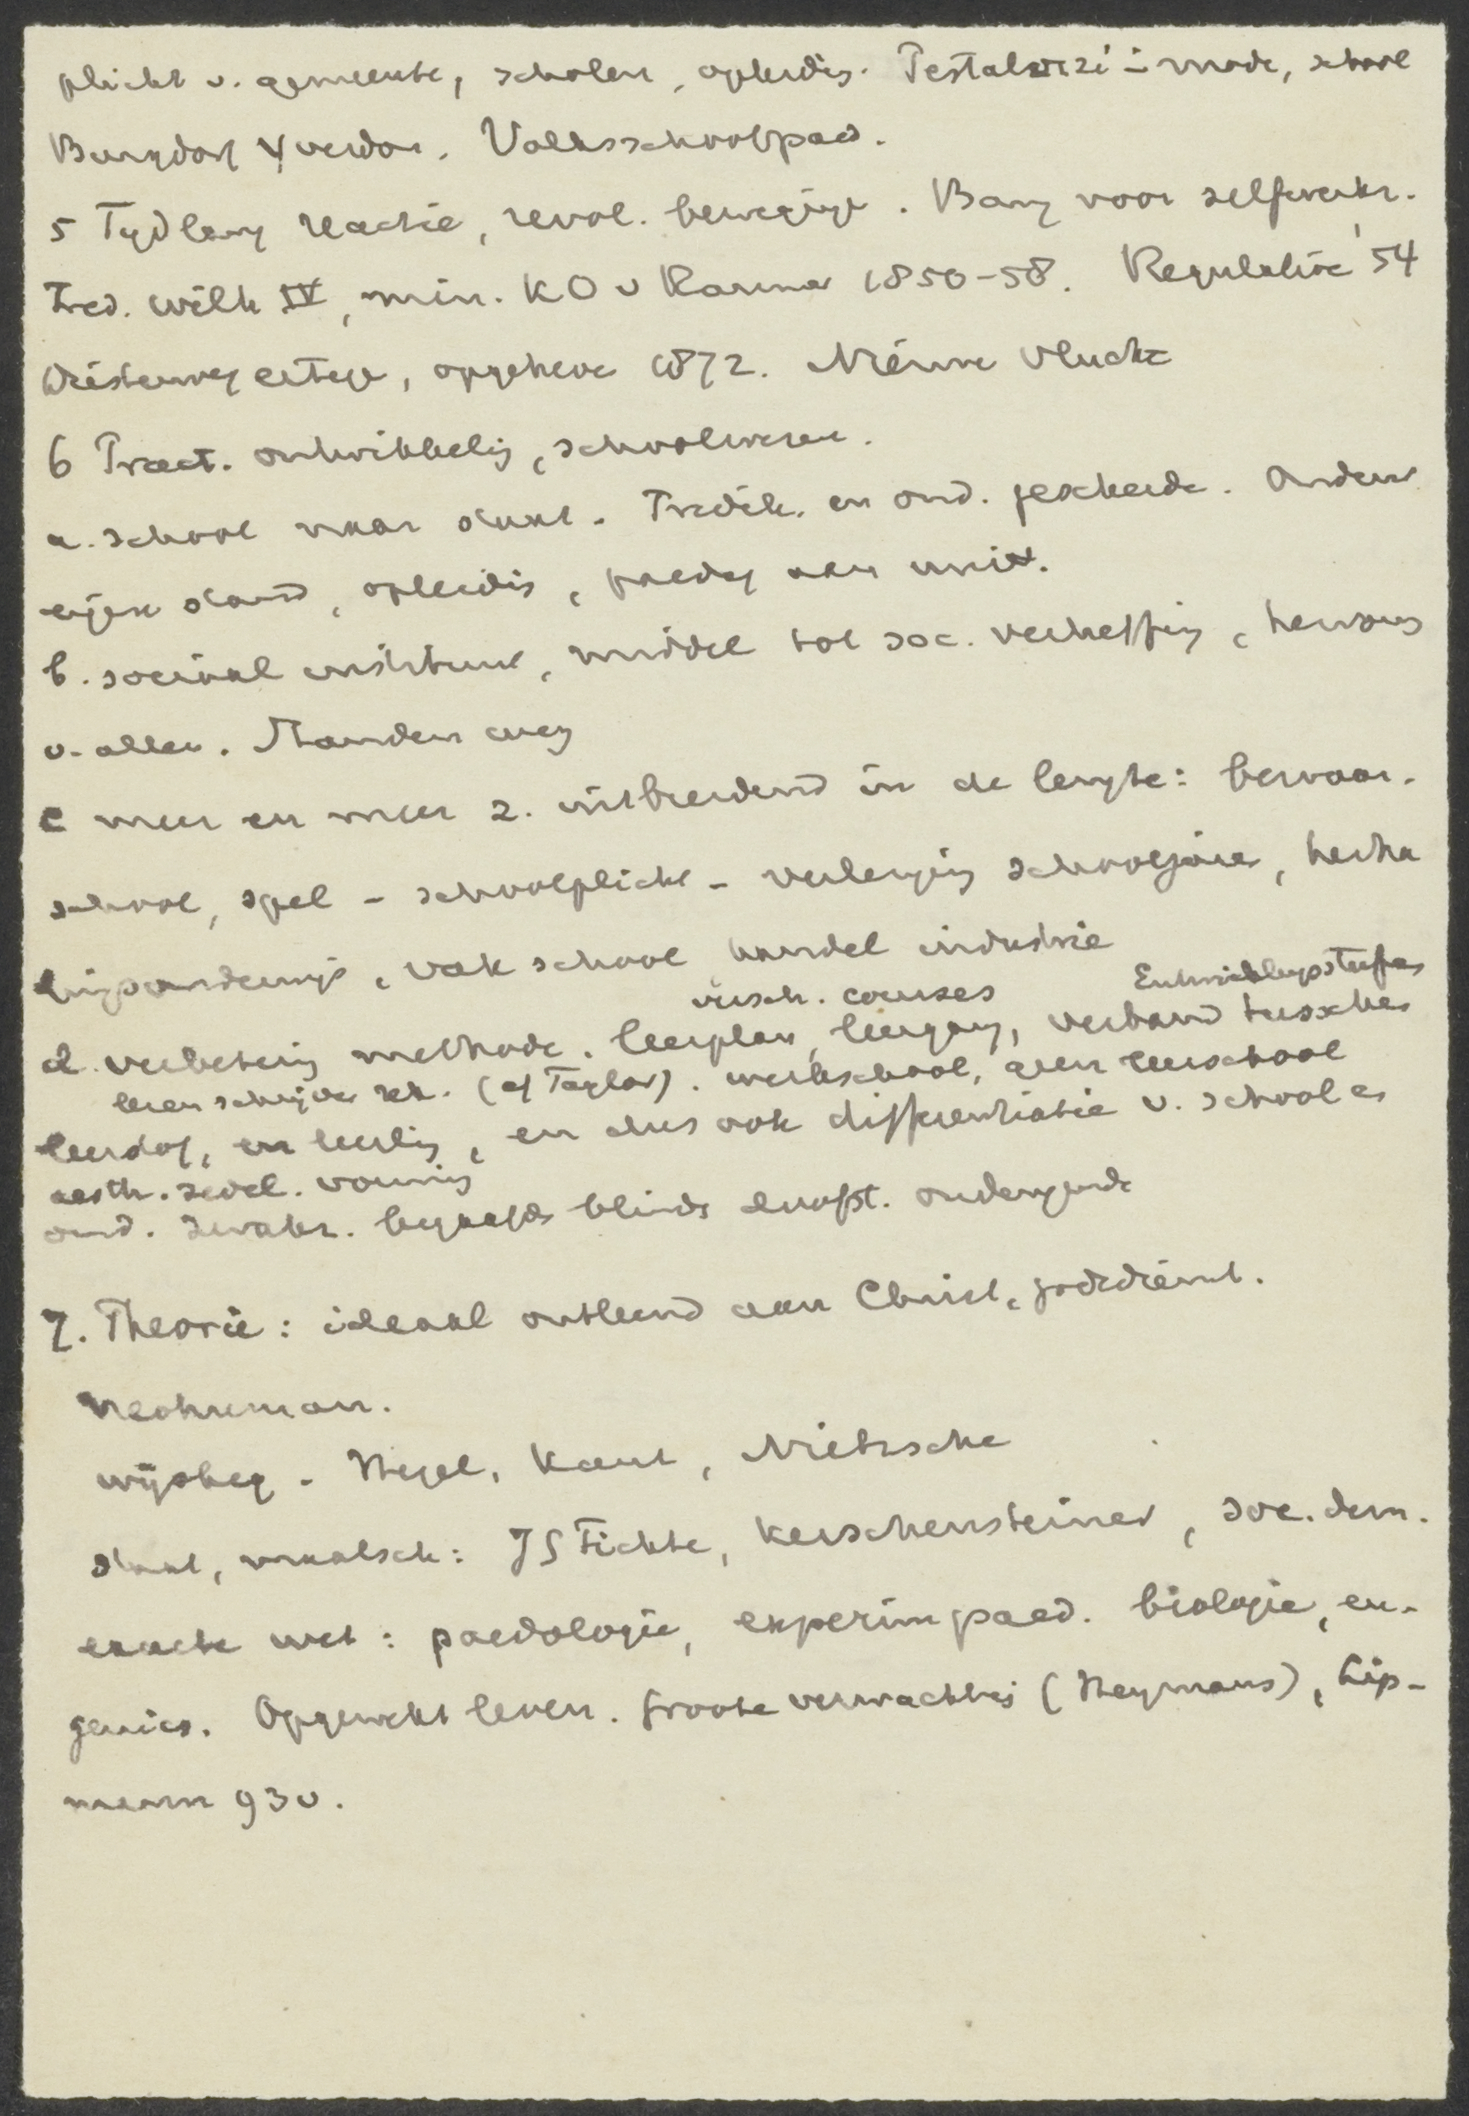 plicht v. gemeente, scholen, opleidg. Pestalozzi in mode, school
Burgdorf Yverdon. Volksschoolpaed.
5 Tydlang reactie, revol. beweging. Bang voor zelfwerkz.
Fred. Wilh IV, min. KO v Raumer 1850-58. Regulative '54
Diesterweg ertegen, opgeheven 1872. Nieuwe vlucht
6 Pract. ontwikkeling, schoolwezen.
a. school naar staat. Predik. en ond. gescheiden. Onderw
eigen stand, opleidg, paedag aan univ.
b. sociaal instituut, middel tot soc. verheffing,
v. allen. Standen weg
c meer en meer z. uitbreidend in de lengte: bewaar-
school, spel - schoolplicht - verlenging schooljaren, herha
lingsonderwijs, vakschool handel industrie
versch. courses Entwicklungsstufen
d. verbetering methode. leerplan, leergang, verband tusschen
lezen schrijven rek. (cf Taylor). werkschool, geen leerschool
leerstof, en leerling, en dus ook differentiatie v. school en
aesth. zedel. vorming
ond. zwakz. begaafde blinde doofst. ondergrond
7. Theorie: ideaal ontleend aan Christ, godsdienst.
neohuman.
wijsbeg - Hegel, Kant, Nietzsche
staat, maatsch: JG Fichte, Kerschensteiner, soc. dem.
exacte wet: paedologie, experim paed. biologie, eu-
genics. Opgewekt leven. Groote verwachting (Heymans), Lip-
mann 930.